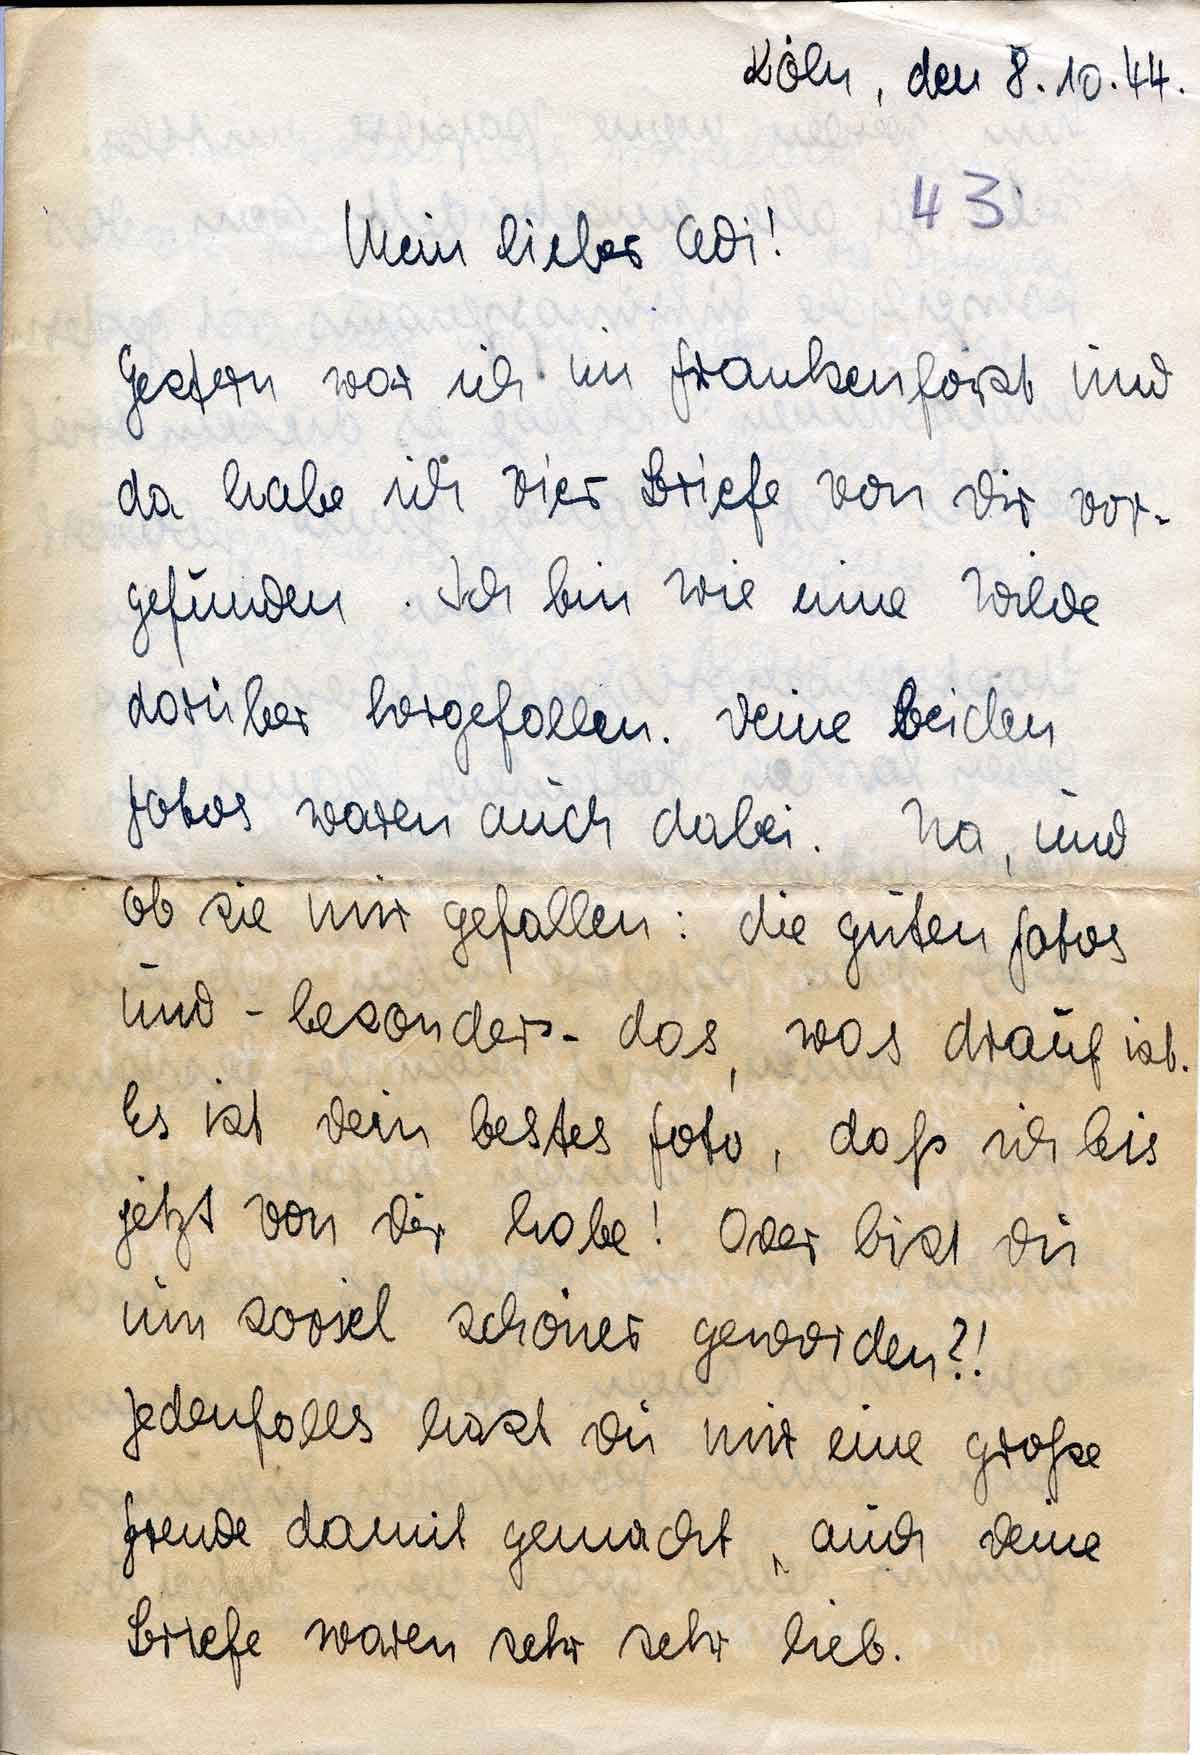 Köln, den 8.10.44.
43
Mein lieber Adi!
Gestern war ich im Frankenforst und
da habe ich vier Briefe von Dir vor-
gefunden. Ich bin wie eine Wilde
darüber hergefallen. Deine beiden
Fotos waren auch dabei. Na, und
ob sie mir gefallen: die guten Fotos
und - besonders - das, was drauf ist.
Es ist Dein bestes Foto, daß ich bis
jetzt von Dir habe! Oder bist Du
um soviel schöner geworden?!
Jedenfalls hast Du mir eine große
Freude damit gemacht, auch Deine
Briefe waren sehr sehr lieb.